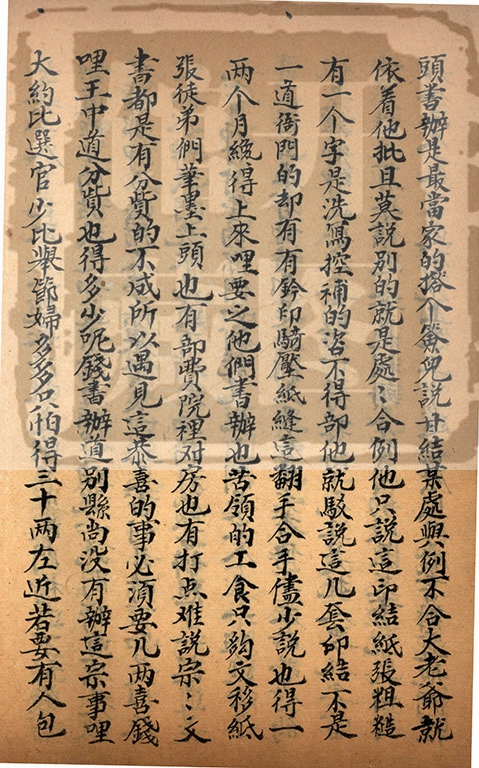 頭書辦是最當家的搭个簽兒說甘結某處與例不合大老爺就
依着他批且莫說別的就是處〻合例他只說這印結紙張粗糙
有一个字是洗寫挖補的咨不得部他就駁說這几套印結不是
一道衙門的却有有鈐印騎壓紙縫這翻手合手儘少說也得一
两个月纔得上來哩要之他們書辦也苦領的工食只夠文移紙
張徒弟們筆墨上頭也有部費院裡对房也有打点难說宗〻文
書都是有分貲的不成所以遇見這恭喜的事必湏要几两喜錢
哩王中道分貲也得多少呢錢書辦道别縣尚没有辦這宗事哩
大約比選官少比舉節婦多多只怕得三十两左近若要有人包